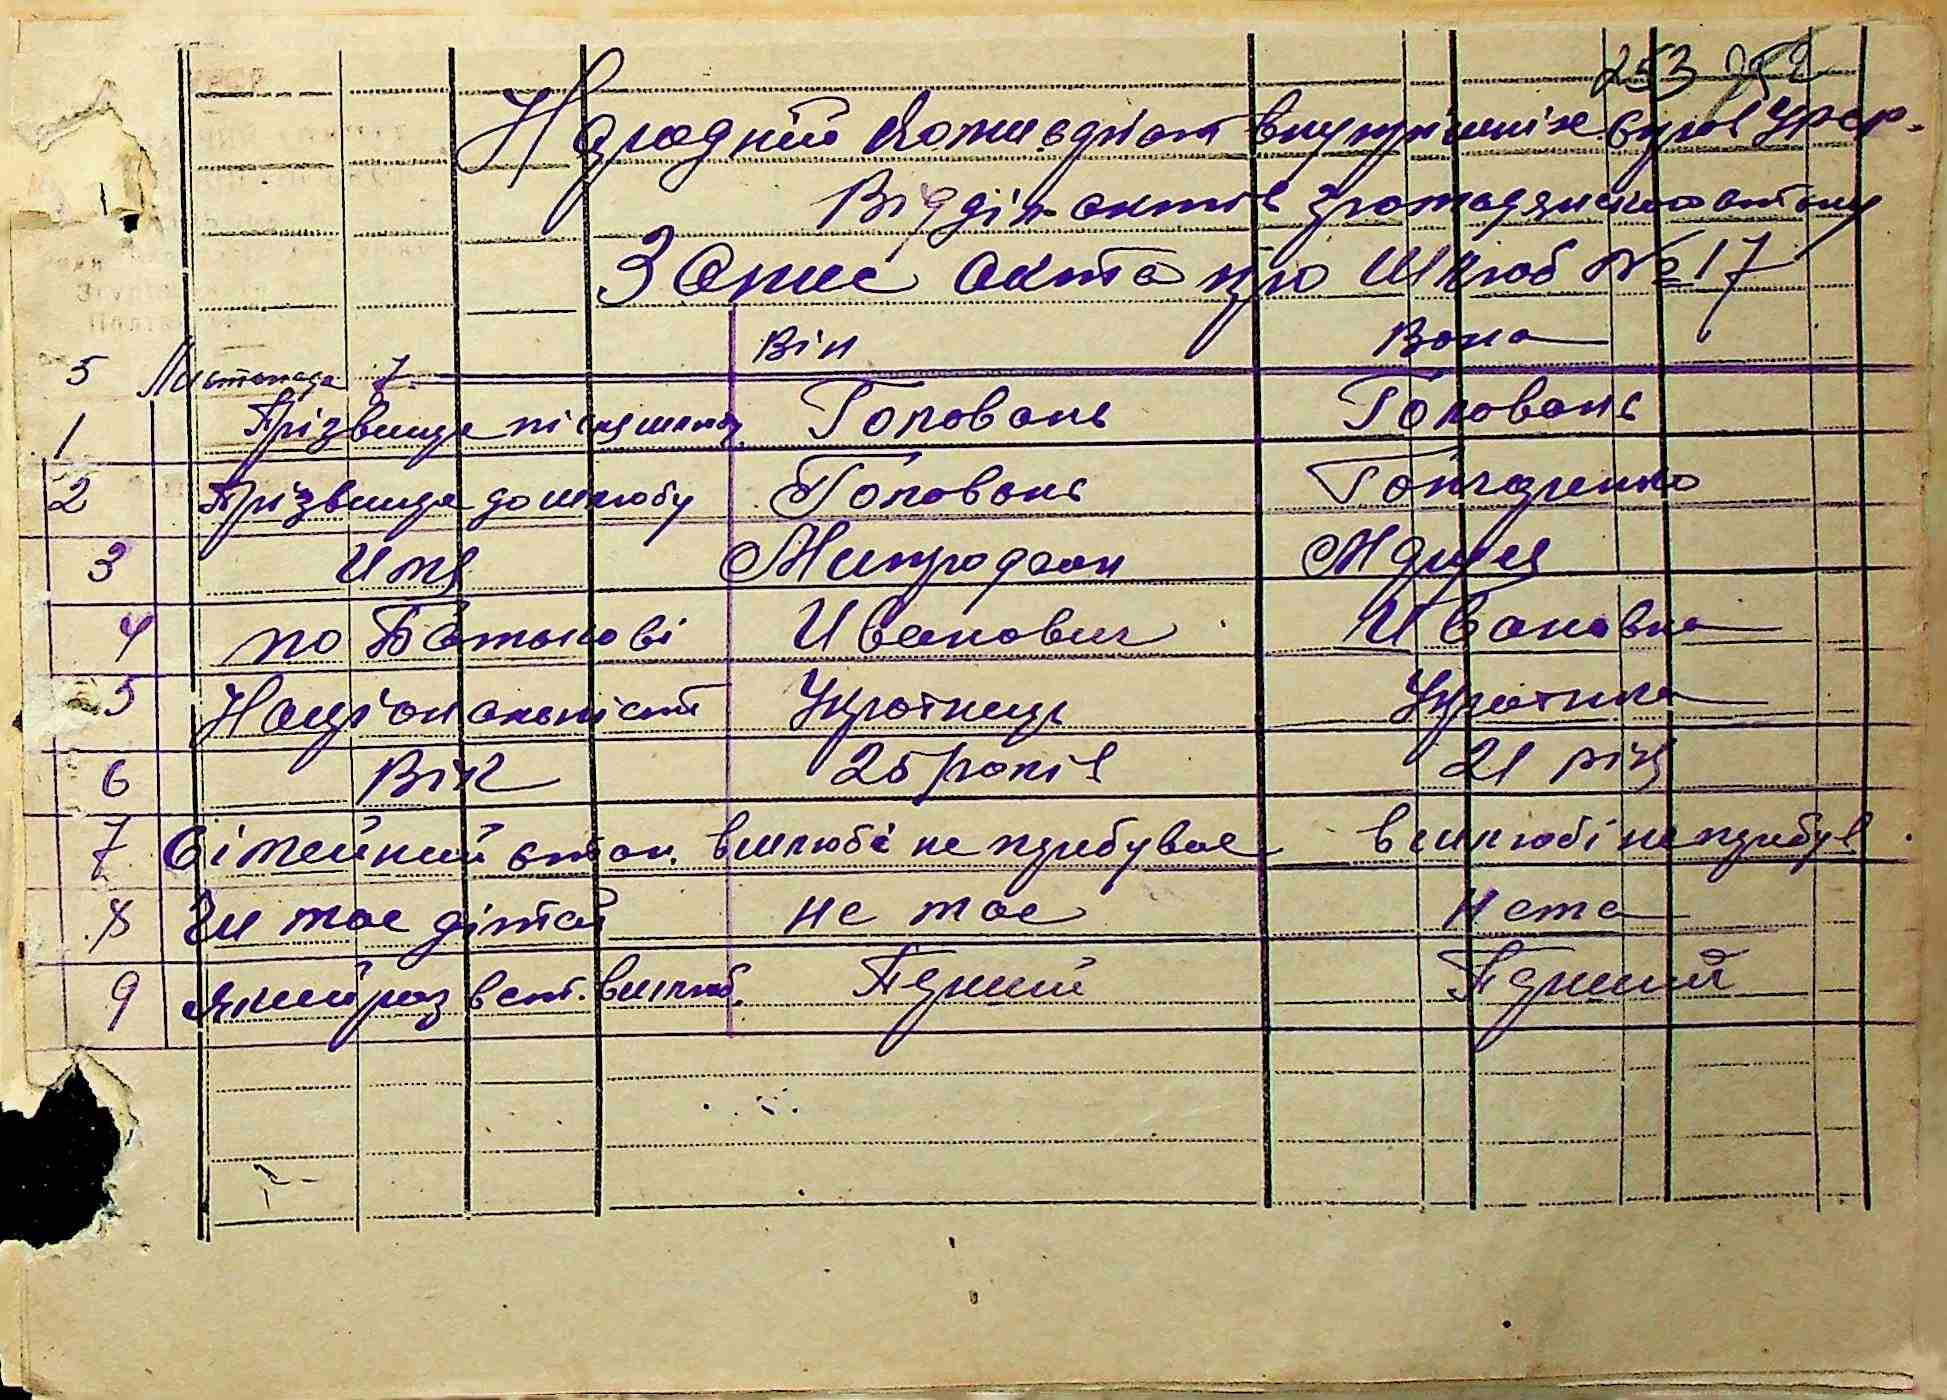 253 252
Народній Комисаріат внутрішніх справ УРСР.
Відділ актів громадянського стану
Запис акта про шлюб № 17
Він Вона
5 Листопада 7
1 Прізвище після шлюбу Головань Головань
2 Прізвище до шлюбу Головань Гончаренко
3 Имя Митрофан Мария
4 по Батькові Иванович Ивановна
5 Національність Украінець Украінка
6 Вік 25 років 21 рік
7 Сімейний стан. в шлюбі не прибував в шлюбі не прибув.
8 Чи має дітей не має нема
9 який раз вст. в шлюб. Перший Перший